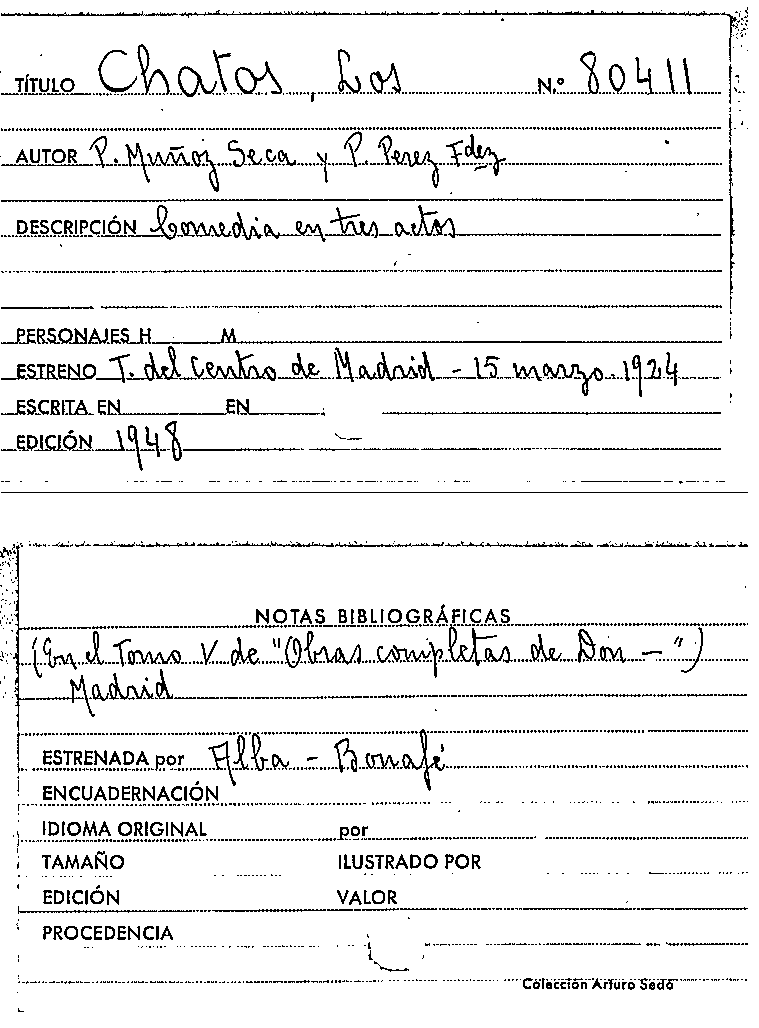 TÍTULO Chatos, Los N.º 80411
AUTOR P. Muñoz Seca y P. Perez Fdez
DESCRIPCIÓN Comedia en tres actos
PERSONAJES H M
ESTRENO T. del Centro de Madrid - 15 marzo 1924
ESCRITA EN EN
EDICIÓN 1948
NOTAS BIBLIOGRÁFICAS
(En el Tomo V de "Obras completas de Don - ")
Madrid
ESTRENADA por Alba - Bonafé
ENCUADERNACIÓN
IDIOMA ORIGINAL por
TAMAÑO ILUSTRADO POR
EDICIÓN VALOR
PROCEDENCIA
Colección Arturo Sedó